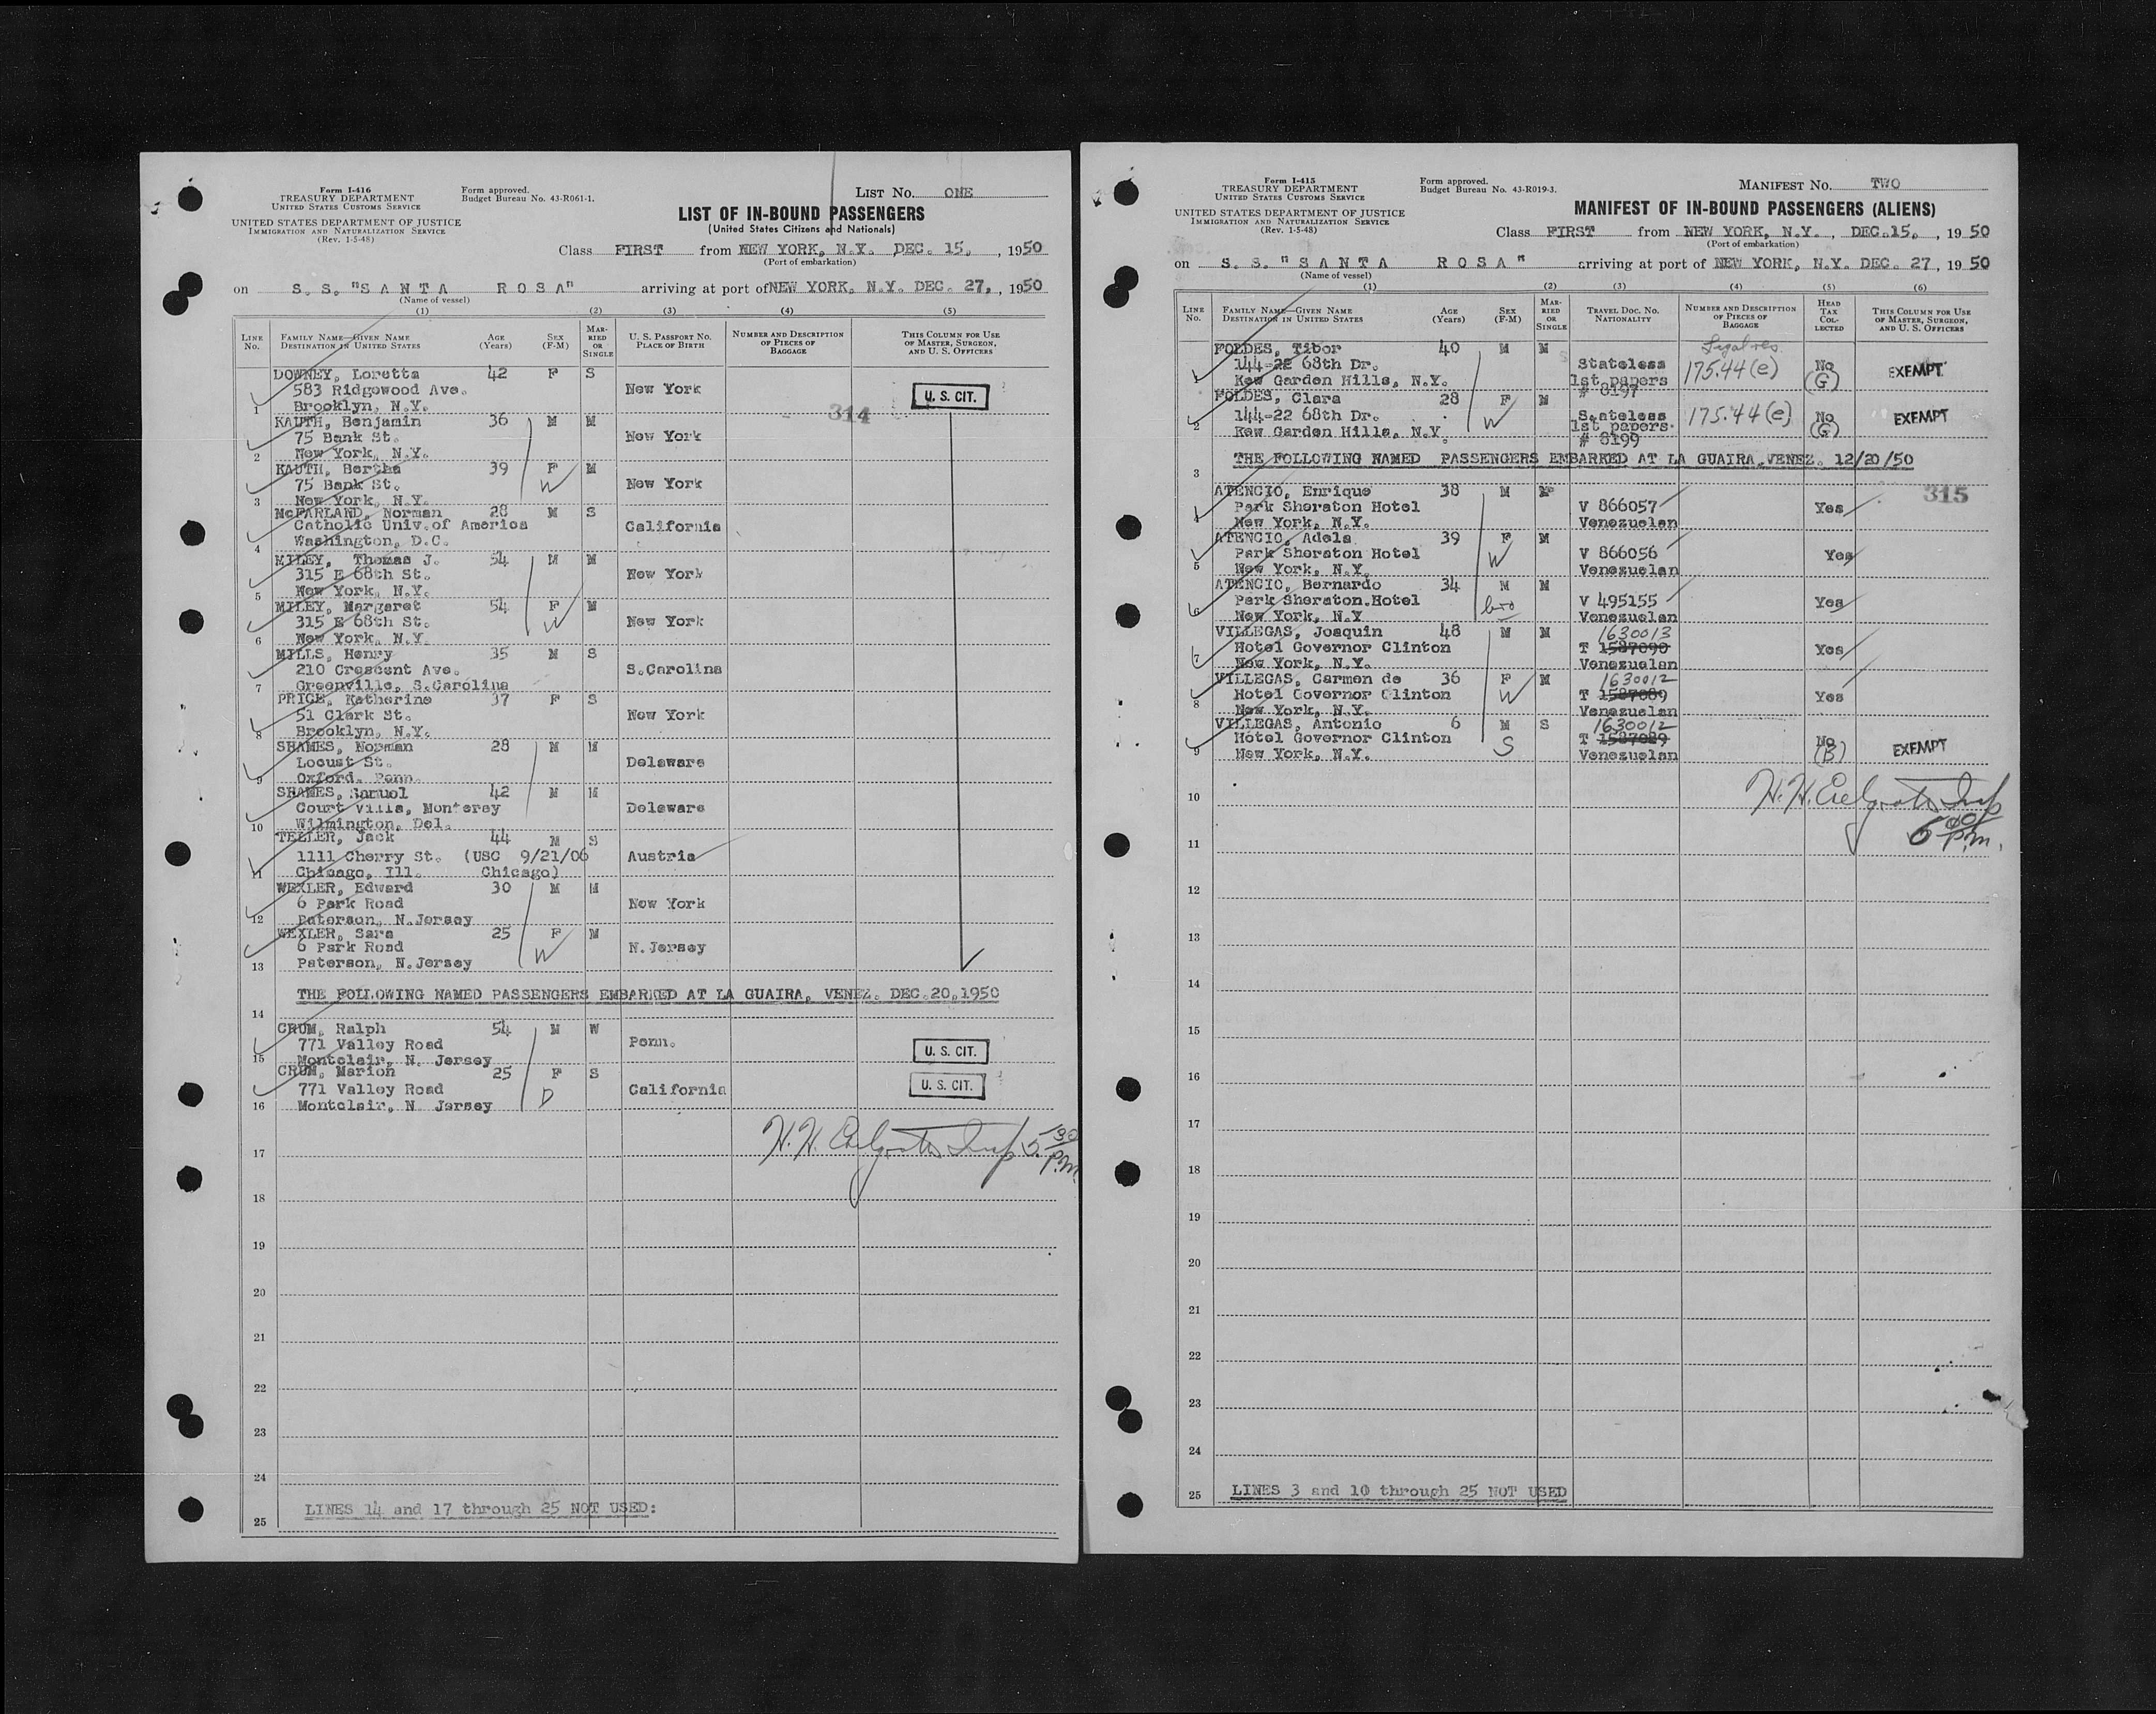 Form I-416
TREASURY DEPARTMENT
UNITED STATES CUSTOMS SERVICE
UNITED STATES DEPARTMENT OF JUSTICE
IMMIGRATION AND NATURALIZATION SERVICE
(Rev. 1-5-48)
Form approved.
Budget Bureau No. 43-R061-1.
LIST NO. ONE
LIST OF IN-BOUND PASSENGERS
(United States Citizens and Nationals)
Class FIRST from NEW YORK, N.Y. DEC. 15, , 1950
(Port of embarkation)
on S. S. "S A N T A R O S A" arriving at port of NEW YORK, N.Y. DEC. 27, , 1950
(Name of vessel)
(1) (2) (3) (4) (5)
LINE NO. FAMILY NAME—GIVEN NAME DESTINATION IN UNITED STATES AGE (Years) SEX (F-M) MARRIED OR SINGLE U. S. PASSPORT NO. PLACE OF BIRTH NUMBER AND DESCRIPTION OF PIECES OF BAGGAGE THIS COLUMN FOR USE OF MASTER, SURGEON, AND U. S. OFFICERS
DOWNEY, Loretta 42 F S
583 Ridgewood Ave. New York U. S. CIT.
1 Brooklyn, N.Y.
314
KAUTH, Benjamin 36 M M
75 Bank St. New York
2 New York, N.Y.
KAUTH, Bertha 39 F M
75 Bank St. W New York
3 New York, N.Y.
McPARLAND, Norman 28 M S
Catholic Univ. of America California
4 Washington, D.C.
MILEY, Thomas J. 54 M M
315 E 68th St. New York
5 New York, N.Y.
MILEY, Margaret 54 F M
315 E 68th St. W New York
6 New York, N.Y.
MILLS, Henry 35 M S
210 Crescent Ave. S.Carolina
7 Greenville, S.Carolina
PRICE, Katherine 37 F S
51 Clark St. New York
8 Brooklyn, N.Y.
SHAMES, Norman 28 M M
Locust St. Delaware
9 Oxford, Penn.
SHAMES, Samuel 42 M M
Court Villa, Monterey Delaware
10 Wilmington, Del.
TELLER, Jack 44 M S
1111 Cherry St. (USC 9/21/06 Austria
11 Chicago, Ill. Chicago)
WEXLER, Edward 30 M M
6 Park Road New York
12 Paterson, N.Jersey
WEXLER, Sara 25 F M
6 Park Road W N.Jersey
13 Paterson, N.Jersey
THE FOLLOWING NAMED PASSENGERS EMBARKED AT LA GUAIRA, VENEZ. DEC.20,1950
14
CRUM, Ralph 54 M W
771 Valley Road Penn. U. S. CIT.
15 Montclair, N. Jersey
CRUM, Marion 25 F S
771 Valley Road D California U. S. CIT.
16 Montclair, N Jersey
H. H. Insp 5 30 P.M.
17
18
19
20
21
22
23
24
LINES 14 and 17 through 25 NOT USED:
25
Form I-415
TREASURY DEPARTMENT
UNITED STATES CUSTOMS SERVICE
UNITED STATES DEPARTMENT OF JUSTICE
IMMIGRATION AND NATURALIZATION SERVICE
(Rev. 1-5-48)
Form approved.
Budget Bureau No. 43-R019-3.
MANIFEST NO. TWO
MANIFEST OF IN-BOUND PASSENGERS (ALIENS)
Class FIRST from NEW YORK, N.Y. , DEC.15, , 1950
(Port of embarkation)
on S. S. "S A N T A R O S A" arriving at port of NEW YORK, N.Y. DEC. 27 , 1950
(Name of vessel)
(1) (2) (3) (4) (5) (6)
LINE NO. FAMILY NAME—GIVEN NAME DESTINATION IN UNITED STATES AGE (Years) SEX (F-M) MARRIED OR SINGLE TRAVEL DOC. NO. NATIONALITY NUMBER AND DESCRIPTION OF PIECES OF BAGGAGE HEAD TAX COLLECTED THIS COLUMN FOR USE OF MASTER, SURGEON, AND U. S. OFFICERS
Legal res
FOLDES, Tibor 40 M M
144-22 68th Dr. Stateless 175.44(e) No EXEMPT
1 Kew Garden Hills, N.Y. 1st papers (G)
# 8197
FOLDES, Clara 28 F M
144-22 68th Dr. W Stateless 175.44(e) No EXEMPT
2 Kew Garden Hills, N.Y. 1st papers (G)
# 8199
THE FOLLOWING NAMED PASSENGERS EMBARKED AT LA GUAIRA, VENEZ. 12/20/50
3
315
ATENCIO, Enrique 38 M M
Park Sheraton Hotel V 866057 Yes
4 New York, N.Y. Venezuelan
ATENCIO, Adela 39 F M
Park Sheraton Hotel W V 866056 Yes
5 New York, N.Y. Venezuelan
ATENCIO, Bernardo 34 M M
Park Sheraton.Hotel bro V 495155 Yes
6 New York, N.Y Venezuelan
VILLEGAS, Joaquin 48 M M 1630013
Hotel Governor Clinton T 1587090 Yes
7 New York, N.Y. Venezuelan
VILLEGAS, Carmen de 36 F M 1630012
Hotel Governor Clinton W T 1587089 Yes
8 New York, N.Y. Venezuelan
VILLEGAS, Antonio 6 M S 1630012
Hotel Governor Clinton S T 1587089 No EXEMPT
9 New York, N.Y. Venezuelan (B)
H. H. Insp
10
6 00 P.M.
11
12
13
14
15
16
17
18
19
20
21
22
23
24
LINES 3 and 10 through 25 NOT USED
25